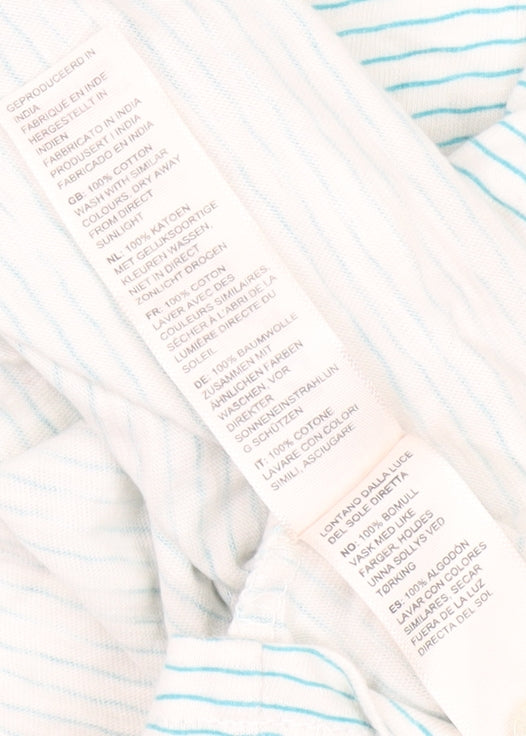 GEPRODUCEERD IN
INDIA
FABRIQUE EN INDE
HERGESTELLT IN
INDIEN
FABBRICATO IN INDIA
PRODUSERT I INDIA
FABRICADO EN INDIA
GB: 100% COTTON
WASH WITH SIMILAR
COLOURS, DRY AWAY
FROM DIRECT
SUNLIGHT
NL: 100% KATOEN
MET GELIJKSOORTIGE
KLEUREN WASSEN,
NIET IN DIRECT
ZONLICHT DROGEN
FR: 100% COTON
LAVER AVEC DES
COULEURS SIMILAIRES,
SÉCHER À L'ABRI DE LA
LUMIÈRE DIRECTE DU
SOLEIL
DE: 100% BAUMWOLLE
ZUSAMMEN MIT
ÄHNLICHEN FARBEN
WASCHEN, VOR
DIREKTER
SONNENEINSTRAHLUN
G SCHÜTZEN
IT: 100% COTONE
LAVARE CON COLORI
SIMILI, ASCIUGARE
LONTANO DALLA LUCE
DEL SOLE DIRETTA
NO: 100% BOMULL
VASK MED LIKE
FARGER, HOLDES
UNNA SOLLYS VED
TØRKING
ES: 100% ALGODÓN
LAVAR CON COLORES
SIMILARES, SECAR
FUERA DE LA LUZ
DIRECTA DEL SOL